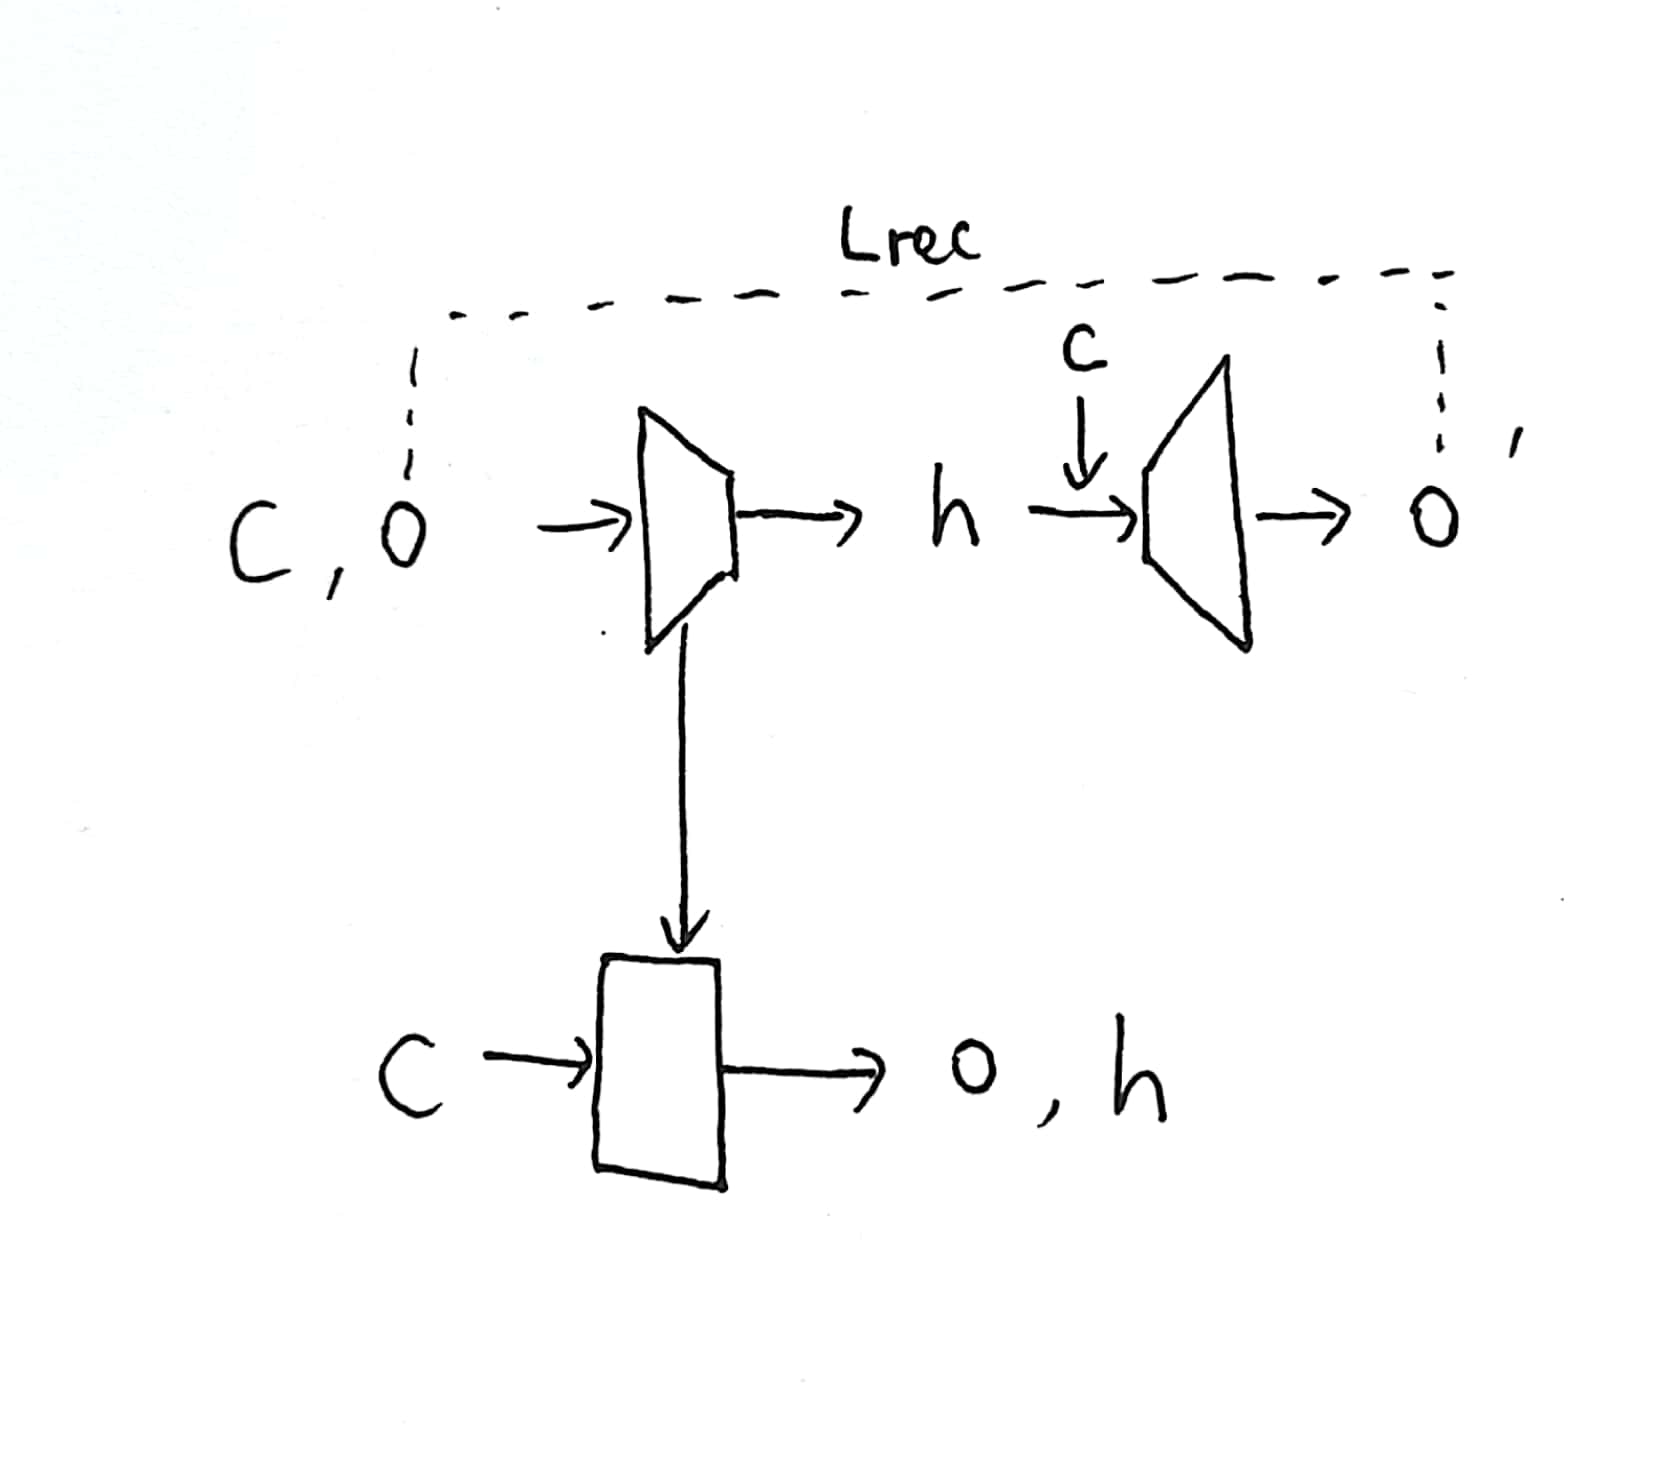 Lrec
c
C, O h O'
C O, h